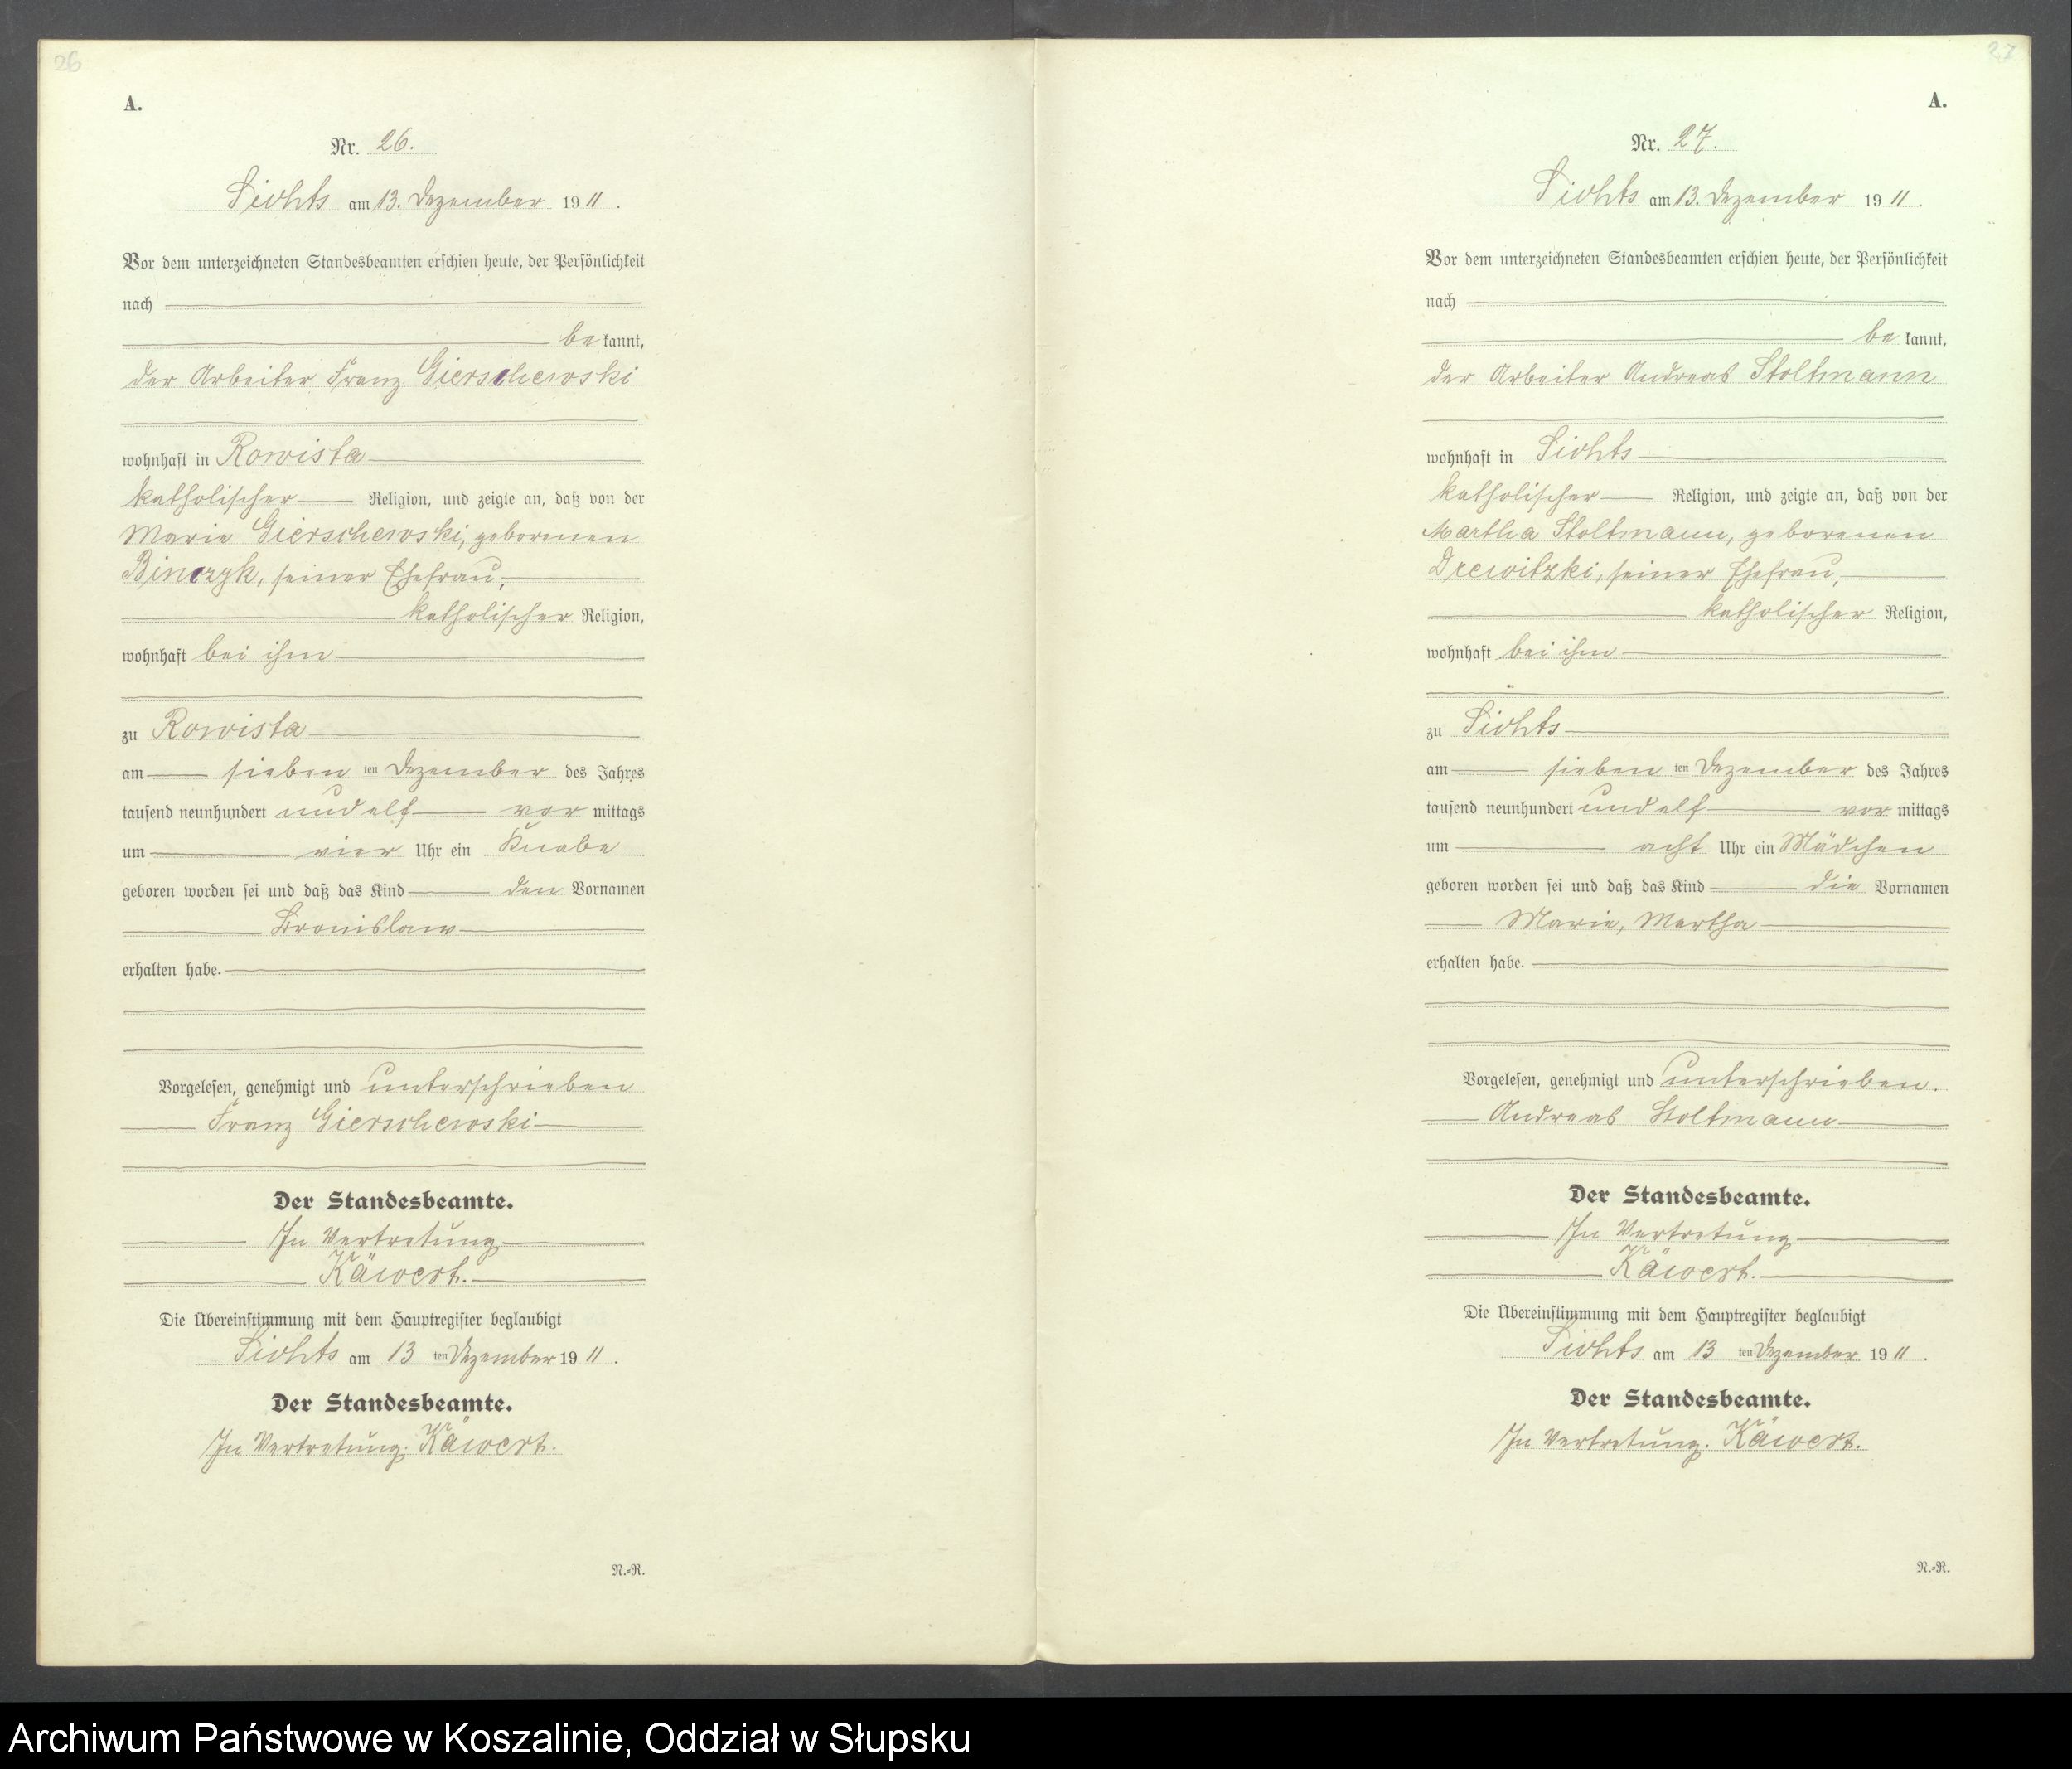 26
A.
Nr. 26.
Lichts am 13. Dezember 1911.
Vor dem unterzeichneten Standesbeamten erschien heute, der Persönlichkeit
nach
be kannt,
der Arbeiter Franz Gierschewski
wohnhaft in Rowista
katholischer Religion, und zeigte an, daß von der
Marie Gierschewski, geborenen
Binczyk, seiner Ehefrau,
katholischer Religion,
wohnhaft bei ihm
zu Rowista
am sieben ten Dezember des Jahres
tausend neunhundert und elf vor mittags
um vier Uhr ein Knabe
geboren worden sei und daß das Kind den Vornamen
Bronislaw
erhalten habe.
Vorgelesen, genehmigt und unterschrieben
Franz Gierschewski
Der Standesbeamte.
In Vertretung
Käwert.
Die Übereinstimmung mit dem Hauptregister beglaubigt
Lichts am 13 ten Dezember 1911.
Der Standesbeamte.
In Vertretung. Käwert.
N.-R.
27
A.
Nr. 27.
Lichts am 13. Dezember 1911.
Vor dem unterzeichneten Standesbeamten erschien heute, der Persönlichkeit
nach
be kannt,
der Arbeiter Andreas Stoltmann
wohnhaft in Lichts
katholischer Religion, und zeigte an, daß von der
Martha Stoltmann, geborenen
Drewitzki, seiner Ehefrau,
katholischer Religion,
wohnhaft bei ihm
zu Lichts
am sieben ten Dezember des Jahres
tausend neunhundert und elf vor mittags
um acht Uhr ein Mädchen
geboren worden sei und daß das Kind die Vornamen
Marie, Martha
erhalten habe.
Vorgelesen, genehmigt und unterschrieben.
Andreas Stoltmann
Der Standesbeamte.
In Vertretung
Käwert.
Die Übereinstimmung mit dem Hauptregister beglaubigt
Lichts am 13 ten Dezember 1911.
Der Standesbeamte.
In Vertretung. Käwert.
N.-R.
Archiwum Państwowe w Koszalinie, Oddział w Słupsku